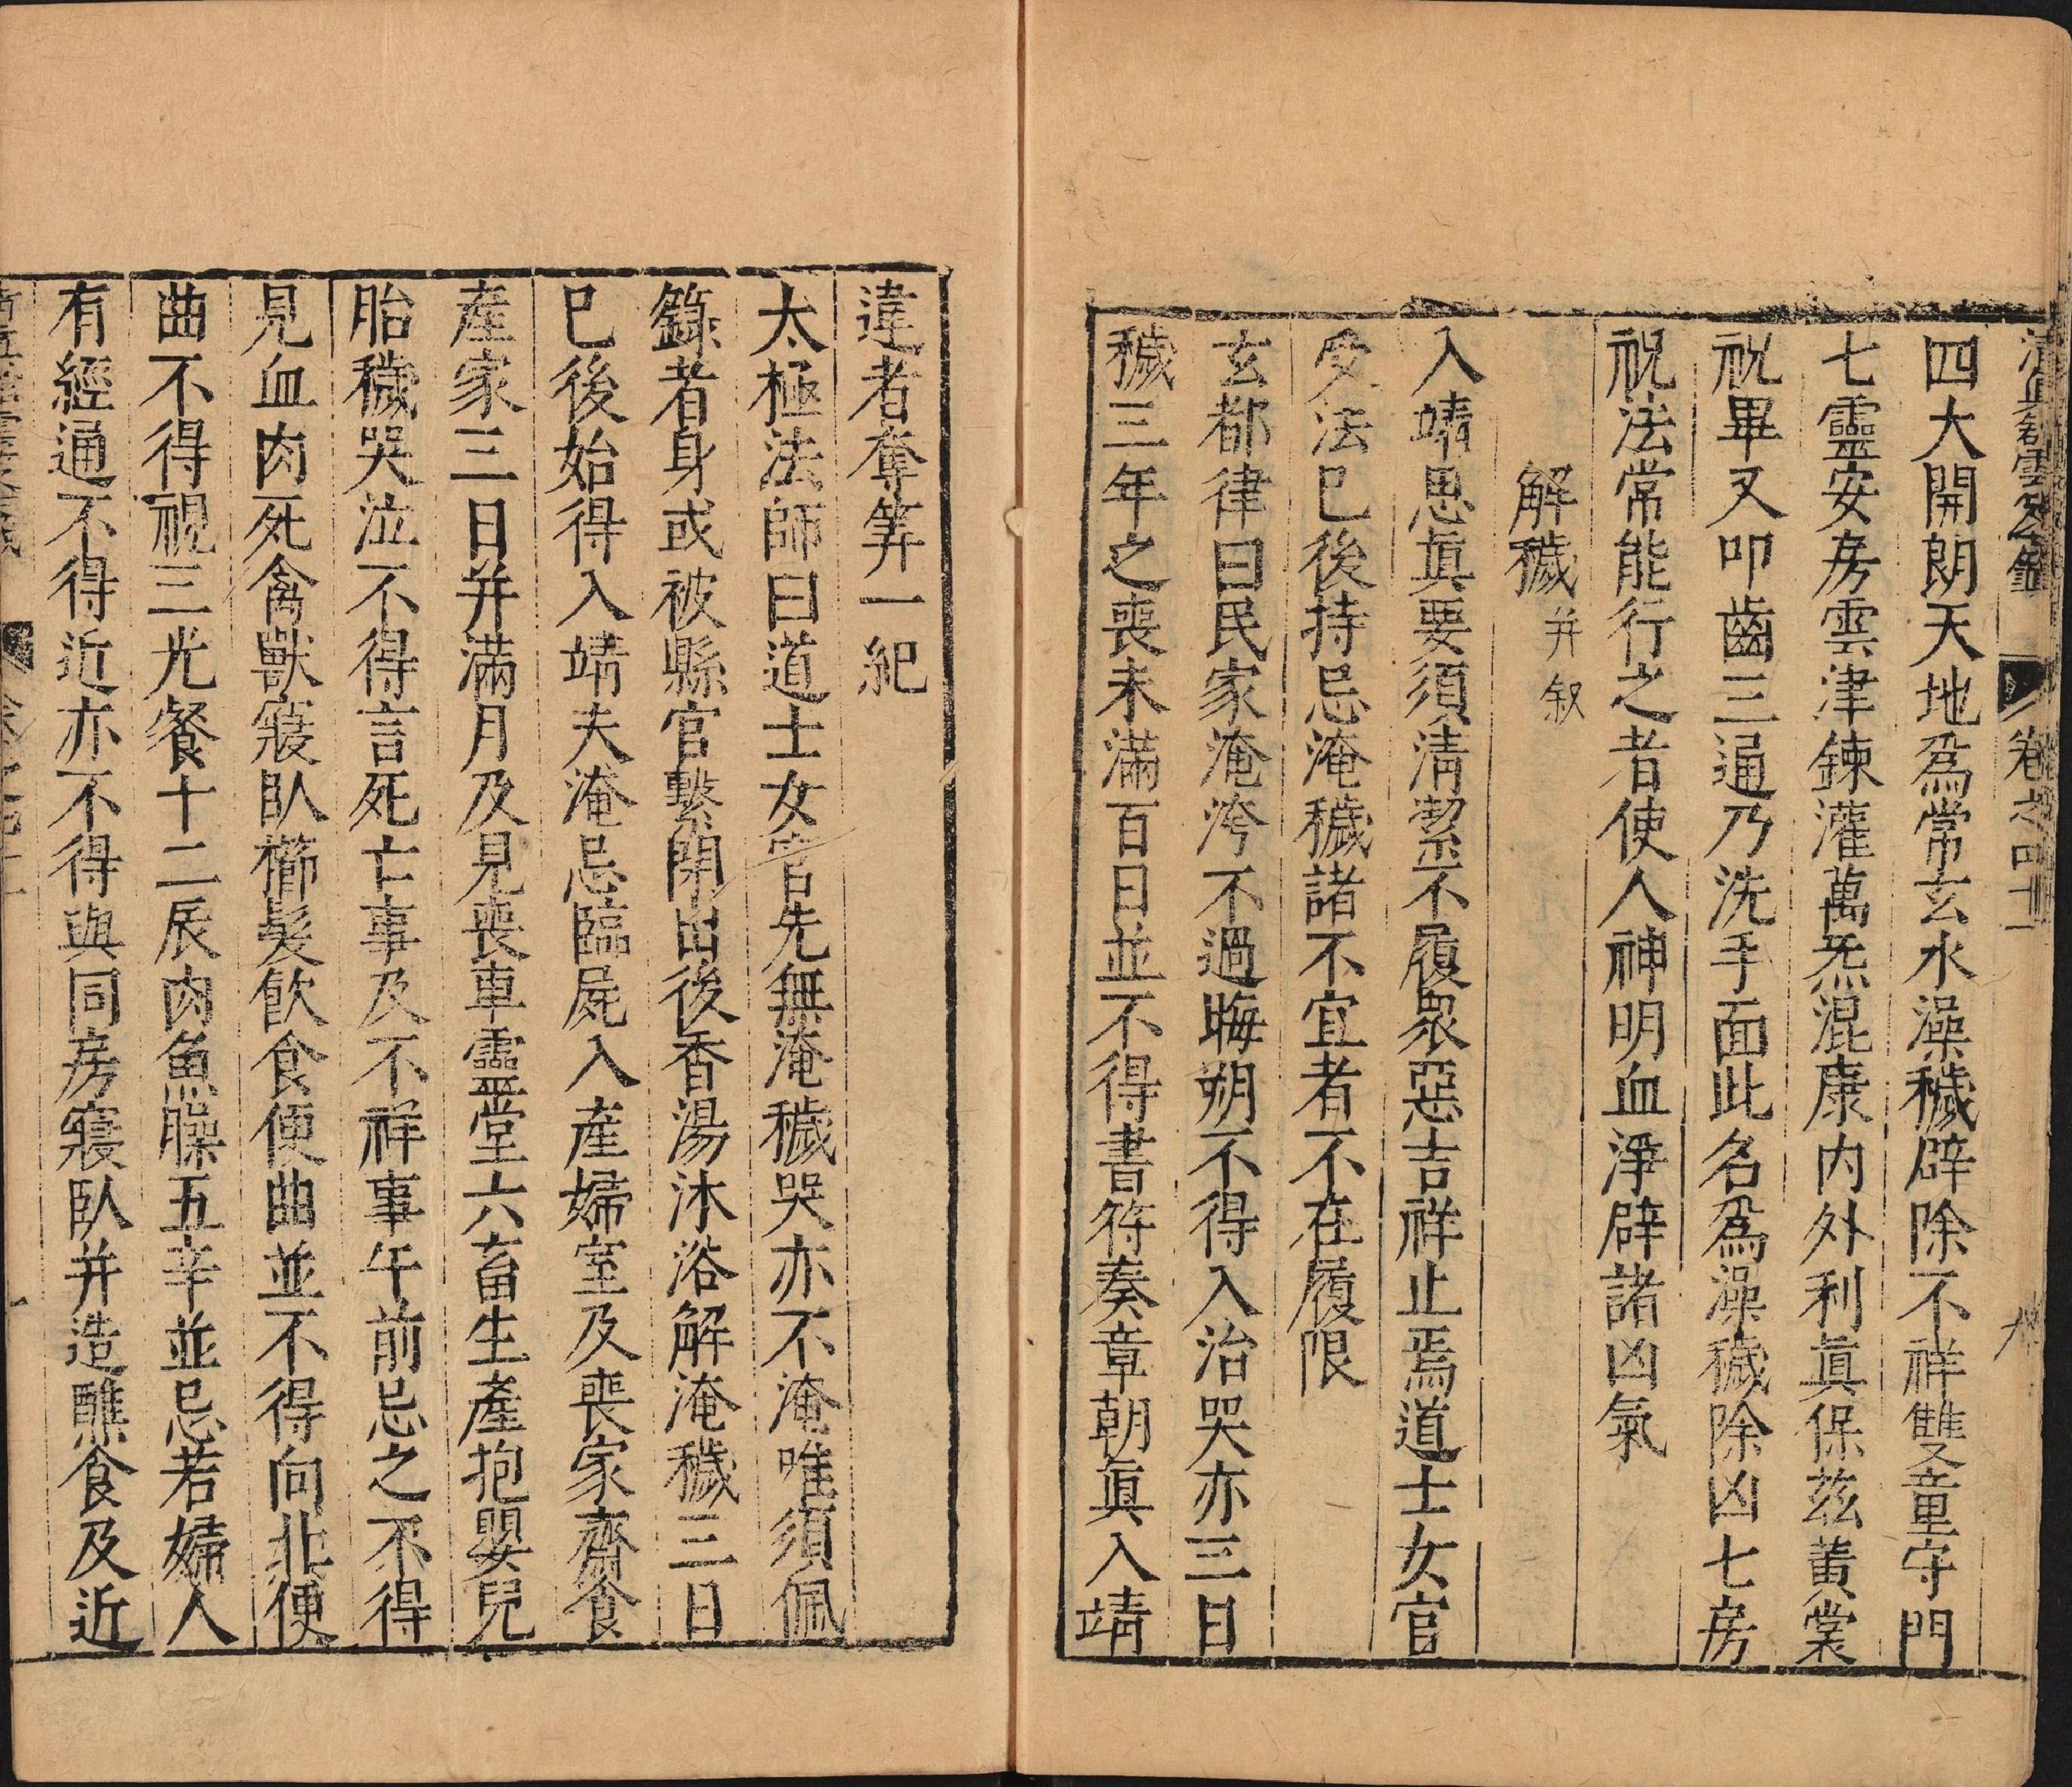 四大開朗天地爲常玄水澡穢辟除不祥雙童守門
七靈安房雲津鍊灌萬炁混康內外利眞保茲黃裳
祝畢又叩齒三通乃洗手面此名爲澡穢除凶七房
祝法常能行之者使人神明血淨辟諸凶氣
解穢并叙
入靖思眞要須清潔不履衆惡吉祥止焉道士女官
受法已後持忌淹穢諸不宜者不在履限
玄都律曰民家淹洿不過晦朔不得入治哭亦三日
穢三年之喪未滿百日並不得書符奏章朝眞入靖
違者奪筭一紀
太極法師曰道士女官先無淹穢哭亦不淹唯須佩
籙者身或被縣官繫閉出後香湯沐浴解淹穢三日
已後始得入靖夫淹忌臨屍入產婦室及喪家齋食
產家三日并滿月及見喪車靈堂六畜生產抱嬰兒
胎穢哭泣不得言死亡事及不祥事午前忌之不得
見血肉死禽獸寢臥櫛髮飲食便曲並不得向北便
曲不得視三光餐十二辰肉魚臊五辛並忌若婦人
有經通不得近亦不得與同房寢臥并造醮食及近